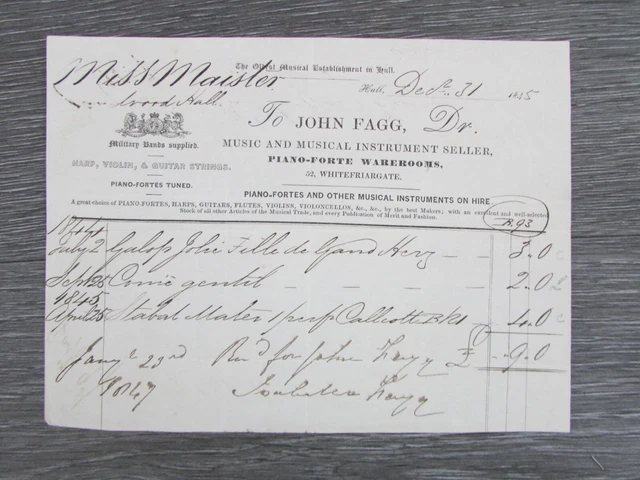 The Oldest Musical Establishment in Hull.
Miss Maister
Wood Hall
Hull, Decr. 31 1845
To JOHN FAGG, Dr.
MUSIC AND MUSICAL INSTRUMENT SELLER,
PIANO-FORTE WAREROOMS,
52, WHITEFRIARGATE.
Military Bands supplied.
HARP, VIOLIN, & GUITAR STRINGS.
PIANO-FORTES TUNED.
PIANO-FORTES AND OTHER MUSICAL INSTRUMENTS ON HIRE
A great choice of PIANO-FORTES, HARPS, GUITARS, FLUTES, VIOLINS, VIOLONCELLOS, &c., &c., by the best Makers; with an excellent and well-selected
Stock of all other Articles of the Musical Trade, and every Publication of Merit and Fashion.
B.93
1844
July 2 Galop Jolie Fille de Gand Herz 3.0
Sept 25 Com gentil 2.0
1845
April 25 Stabat Mater 1 perf Callcott Bk1 4.0
Jany 23rd Recd for John Fagg £ - 9.0
1847 Isabella Fagg